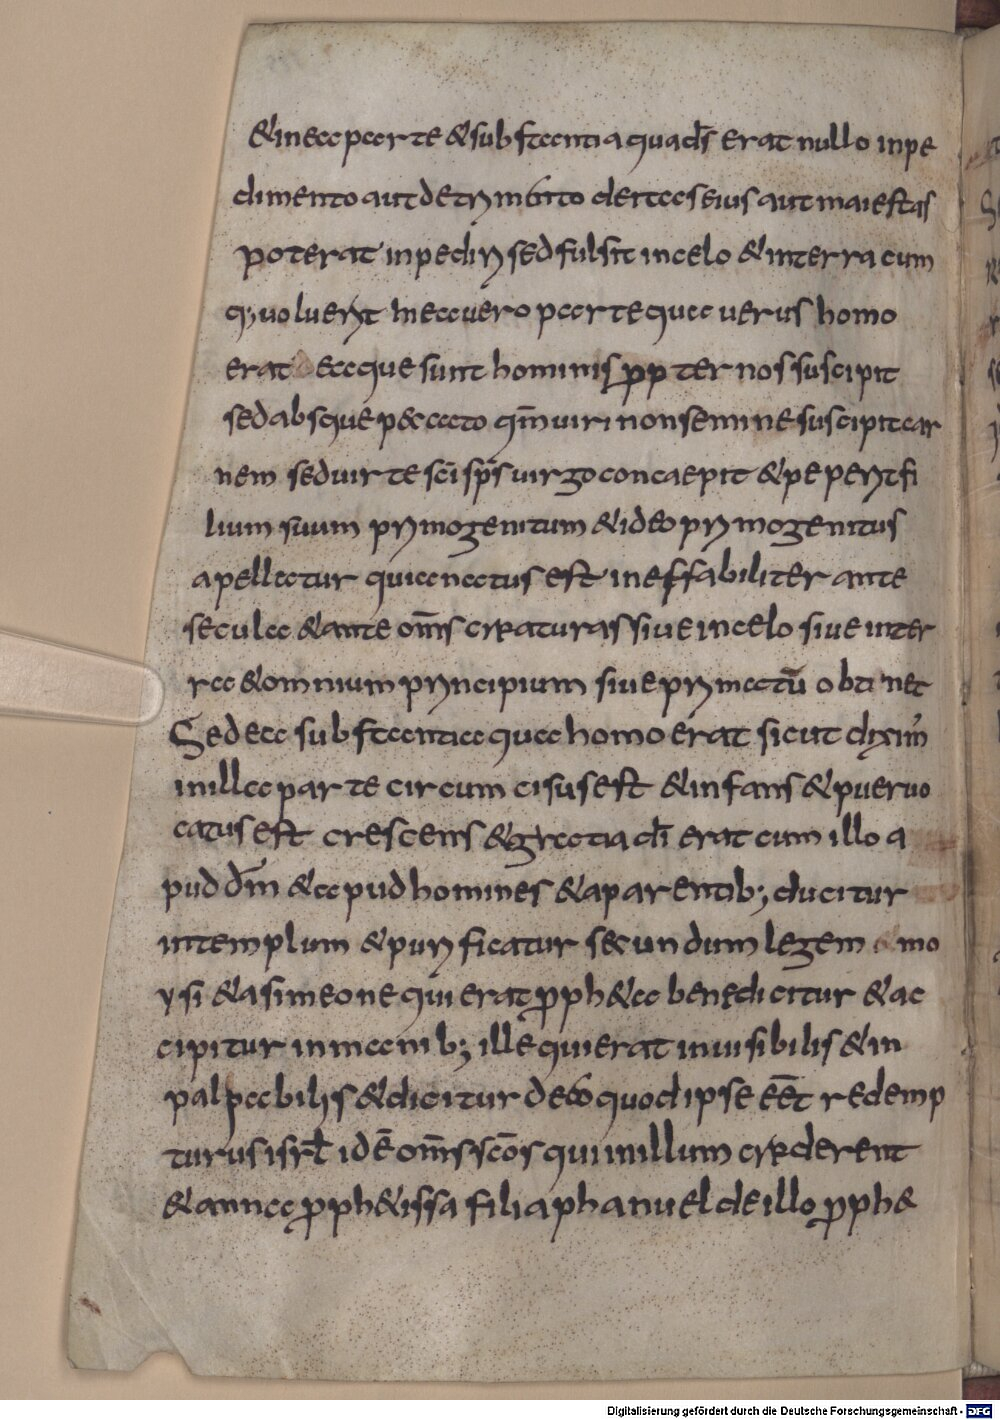 & in ea parte & substantia qua ds̄ erat nullo inpe
dimento aut detrimento deitas eius aut maiestas
poterat inpediri sed fulsit in celo & in terra cum
q; voluerit In ea vero parte qua verus homo
erat eaque sunt hominis propter nos suscipit
sed absque peccato qm̄ viri non semine suscipit car
nem sed uirte sci sps̄ uirgo concaepit & peperit fi
lium suum primogenitum & ideo primogenitus
apellatur quia natus est ineffabiliter ante
secula & ante om̄s creaturas sive in celo sive in ter
ra & omnium principium sive primatū obtinet
Sed ea substantia qua homo erat sicut dixim'
in illa parte circumcisus est & infans & puer uo
catus est crescens & gratia dī erat cum illo a
pud dm̄ & apud homines & a parentib; ducitur
in templum & purificatur secundum legem mo
ysi & a simeone qui erat proph&a benedicitur & ac
cipitur in manib; ille qui erat inuisibilis & in
palpabilis & dicitur de eo quod ipse eēt redemp
turus isrł id ē om̄s scōs qui in illum crederent
& anna proph&issa filia phanuel de illo proph&
Digitalisierung gefördert durch die Deutsche Forschungsgemeinschaft - DFG